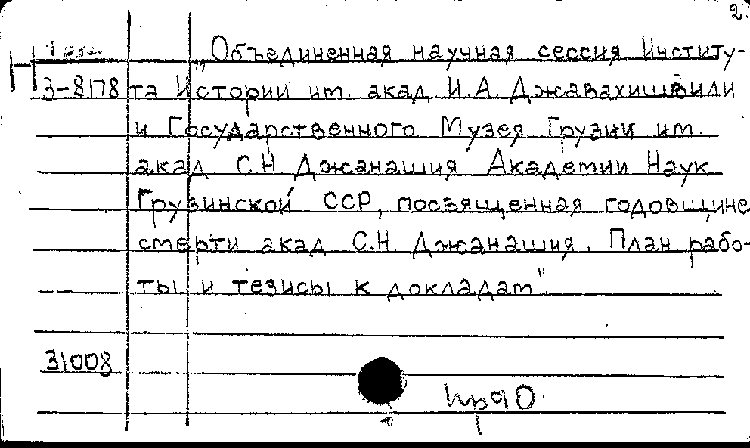 2.
„Объединенная научная сессия Институ-
3-8178 та Истории им. акад. И.А. Джавахишвили
и Государственного Музея Грузии им.
акад С.Н Джанашия Академии Наук
Грузинской ССР, посвященная годовщине
смерти акад С.Н. Джанашия. План рабо-
ты и тезисы к докладам"
31008